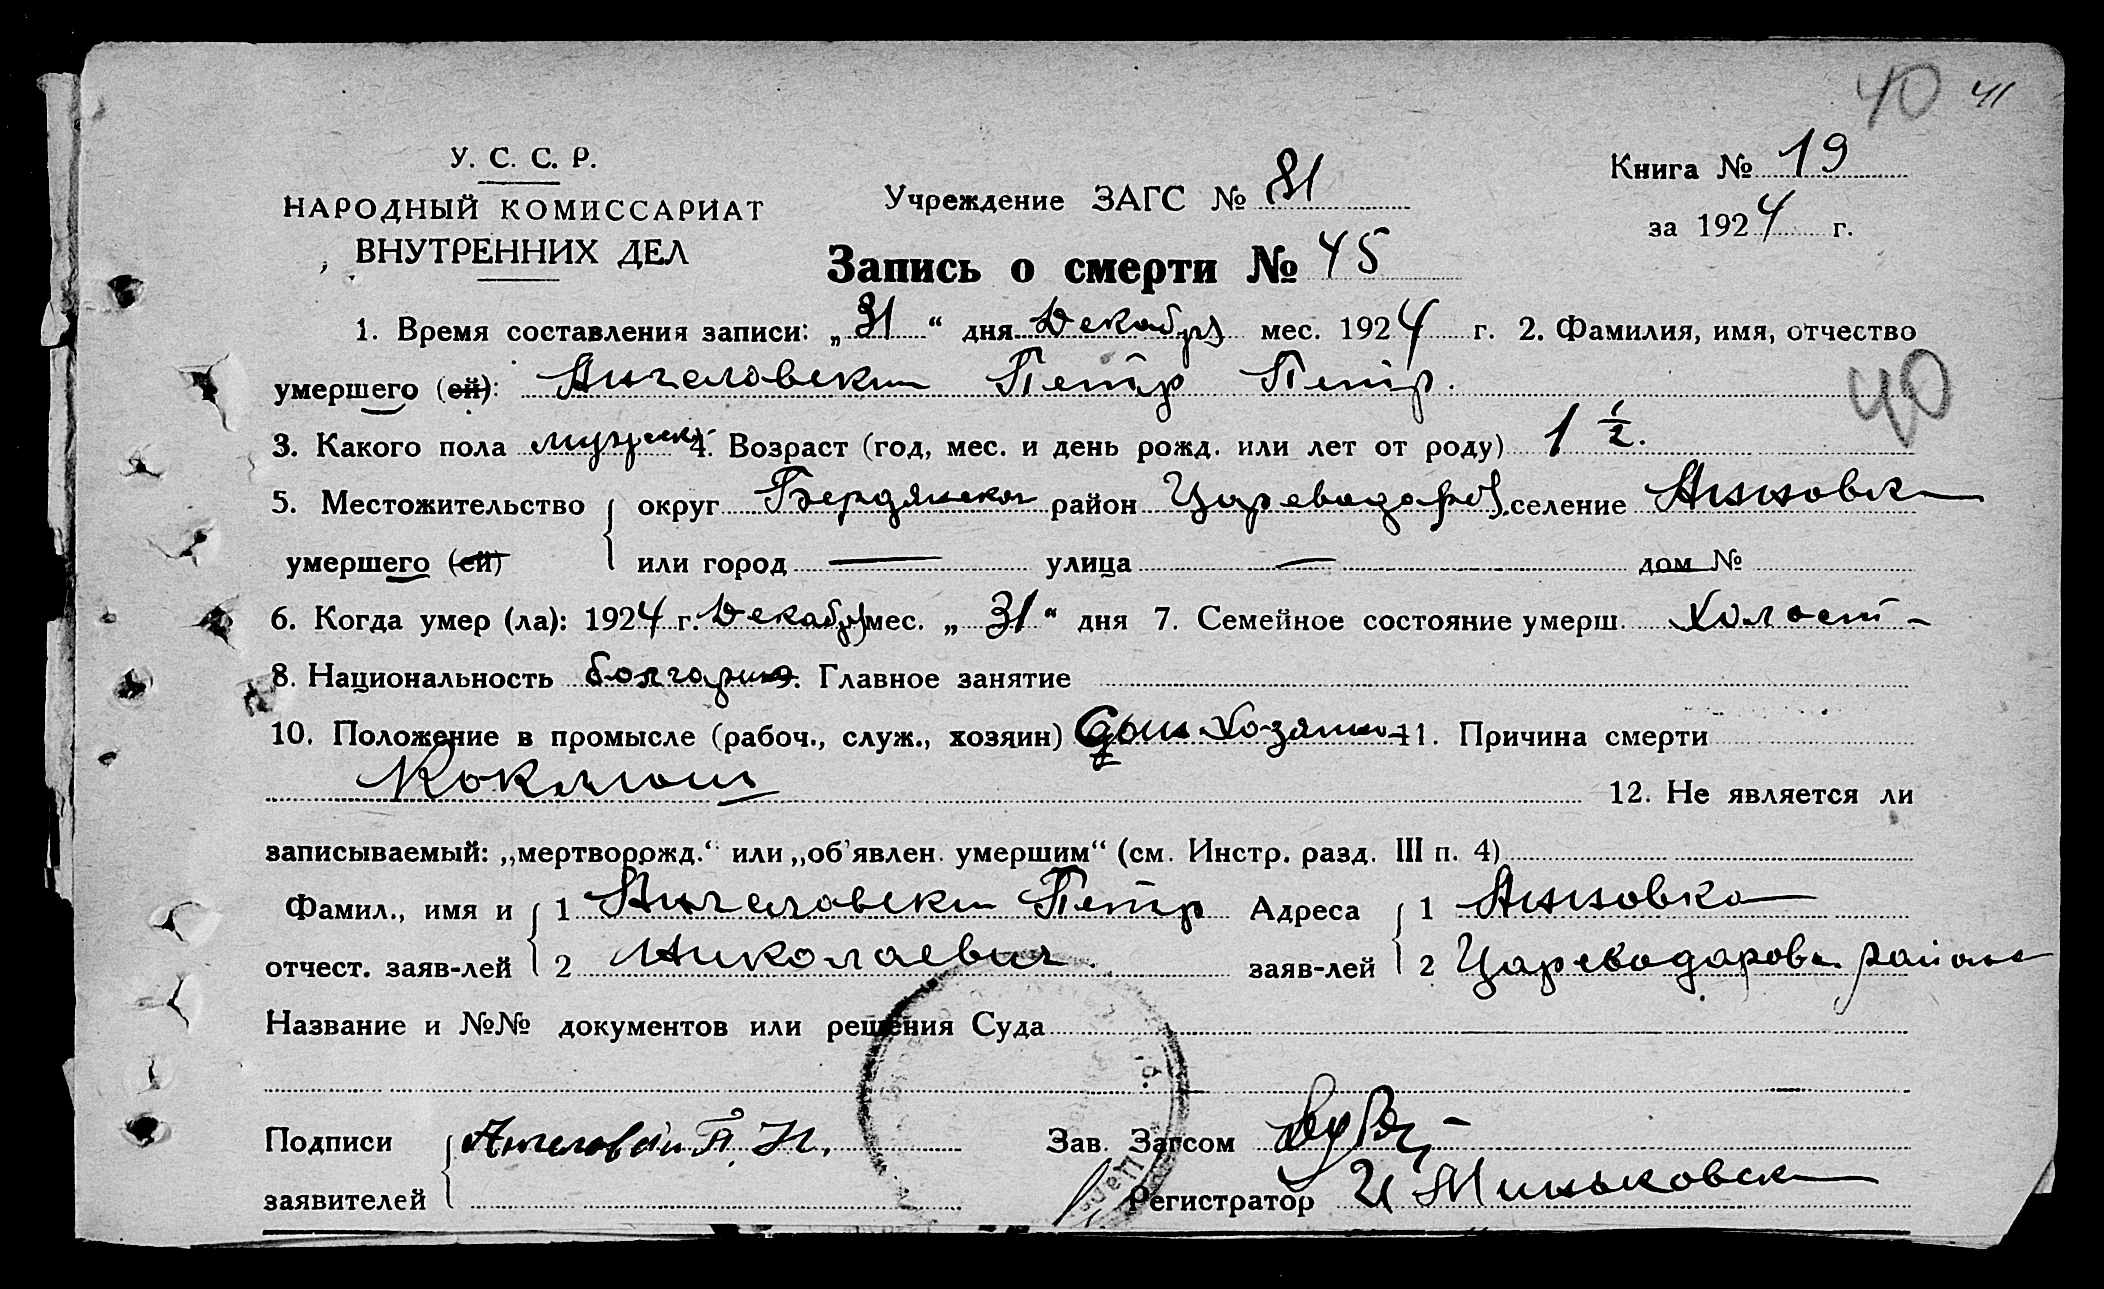 40 41
У. С. С. Р.
НАРОДНЫЙ КОМИССАРИАТ
ВНУТРЕННИХ ДЕЛ
Учреждение ЗАГС № 81
Книга № 19
за 1924 г.
Запись о смерти № 45
1. Время составления записи: „31“ дня Декабря мес. 1924 г. 2. Фамилия, имя, отчество
умершего (ей): Ангеловский Петр Петр.
40
3. Какого пола мужск. 4. Возраст (год, мес. и день рожд. или лет от роду) 1 1/2.
5. Местожительство округ Бердянский район Цареводаров. селение Анновка
умершего (ей) или город — улица — дом №
6. Когда умер (ла): 1924 г. Декабря мес. „31“ дня 7. Семейное состояние умерш. Холост
8. Национальность болгарин 9. Главное занятие
10. Положение в промысле (рабоч., служ., хозяин) Сын Хозяина 11. Причина смерти
Коклюш
12. Не является ли
записываемый: „мертворожд.“ или „об'явлен. умершим“ (см. Инстр. разд. III п. 4)
Фамил., имя и 1 Ангеловский Петр Адреса 1 Анновка
отчест. заяв-лей 2 Николаевич заяв-лей 2 Цареводаров. района
Название и №№ документов или решения Суда
Подписи Ангеловский П. Н. Зав. Загсом
заявителей Регистратор И Миньковск